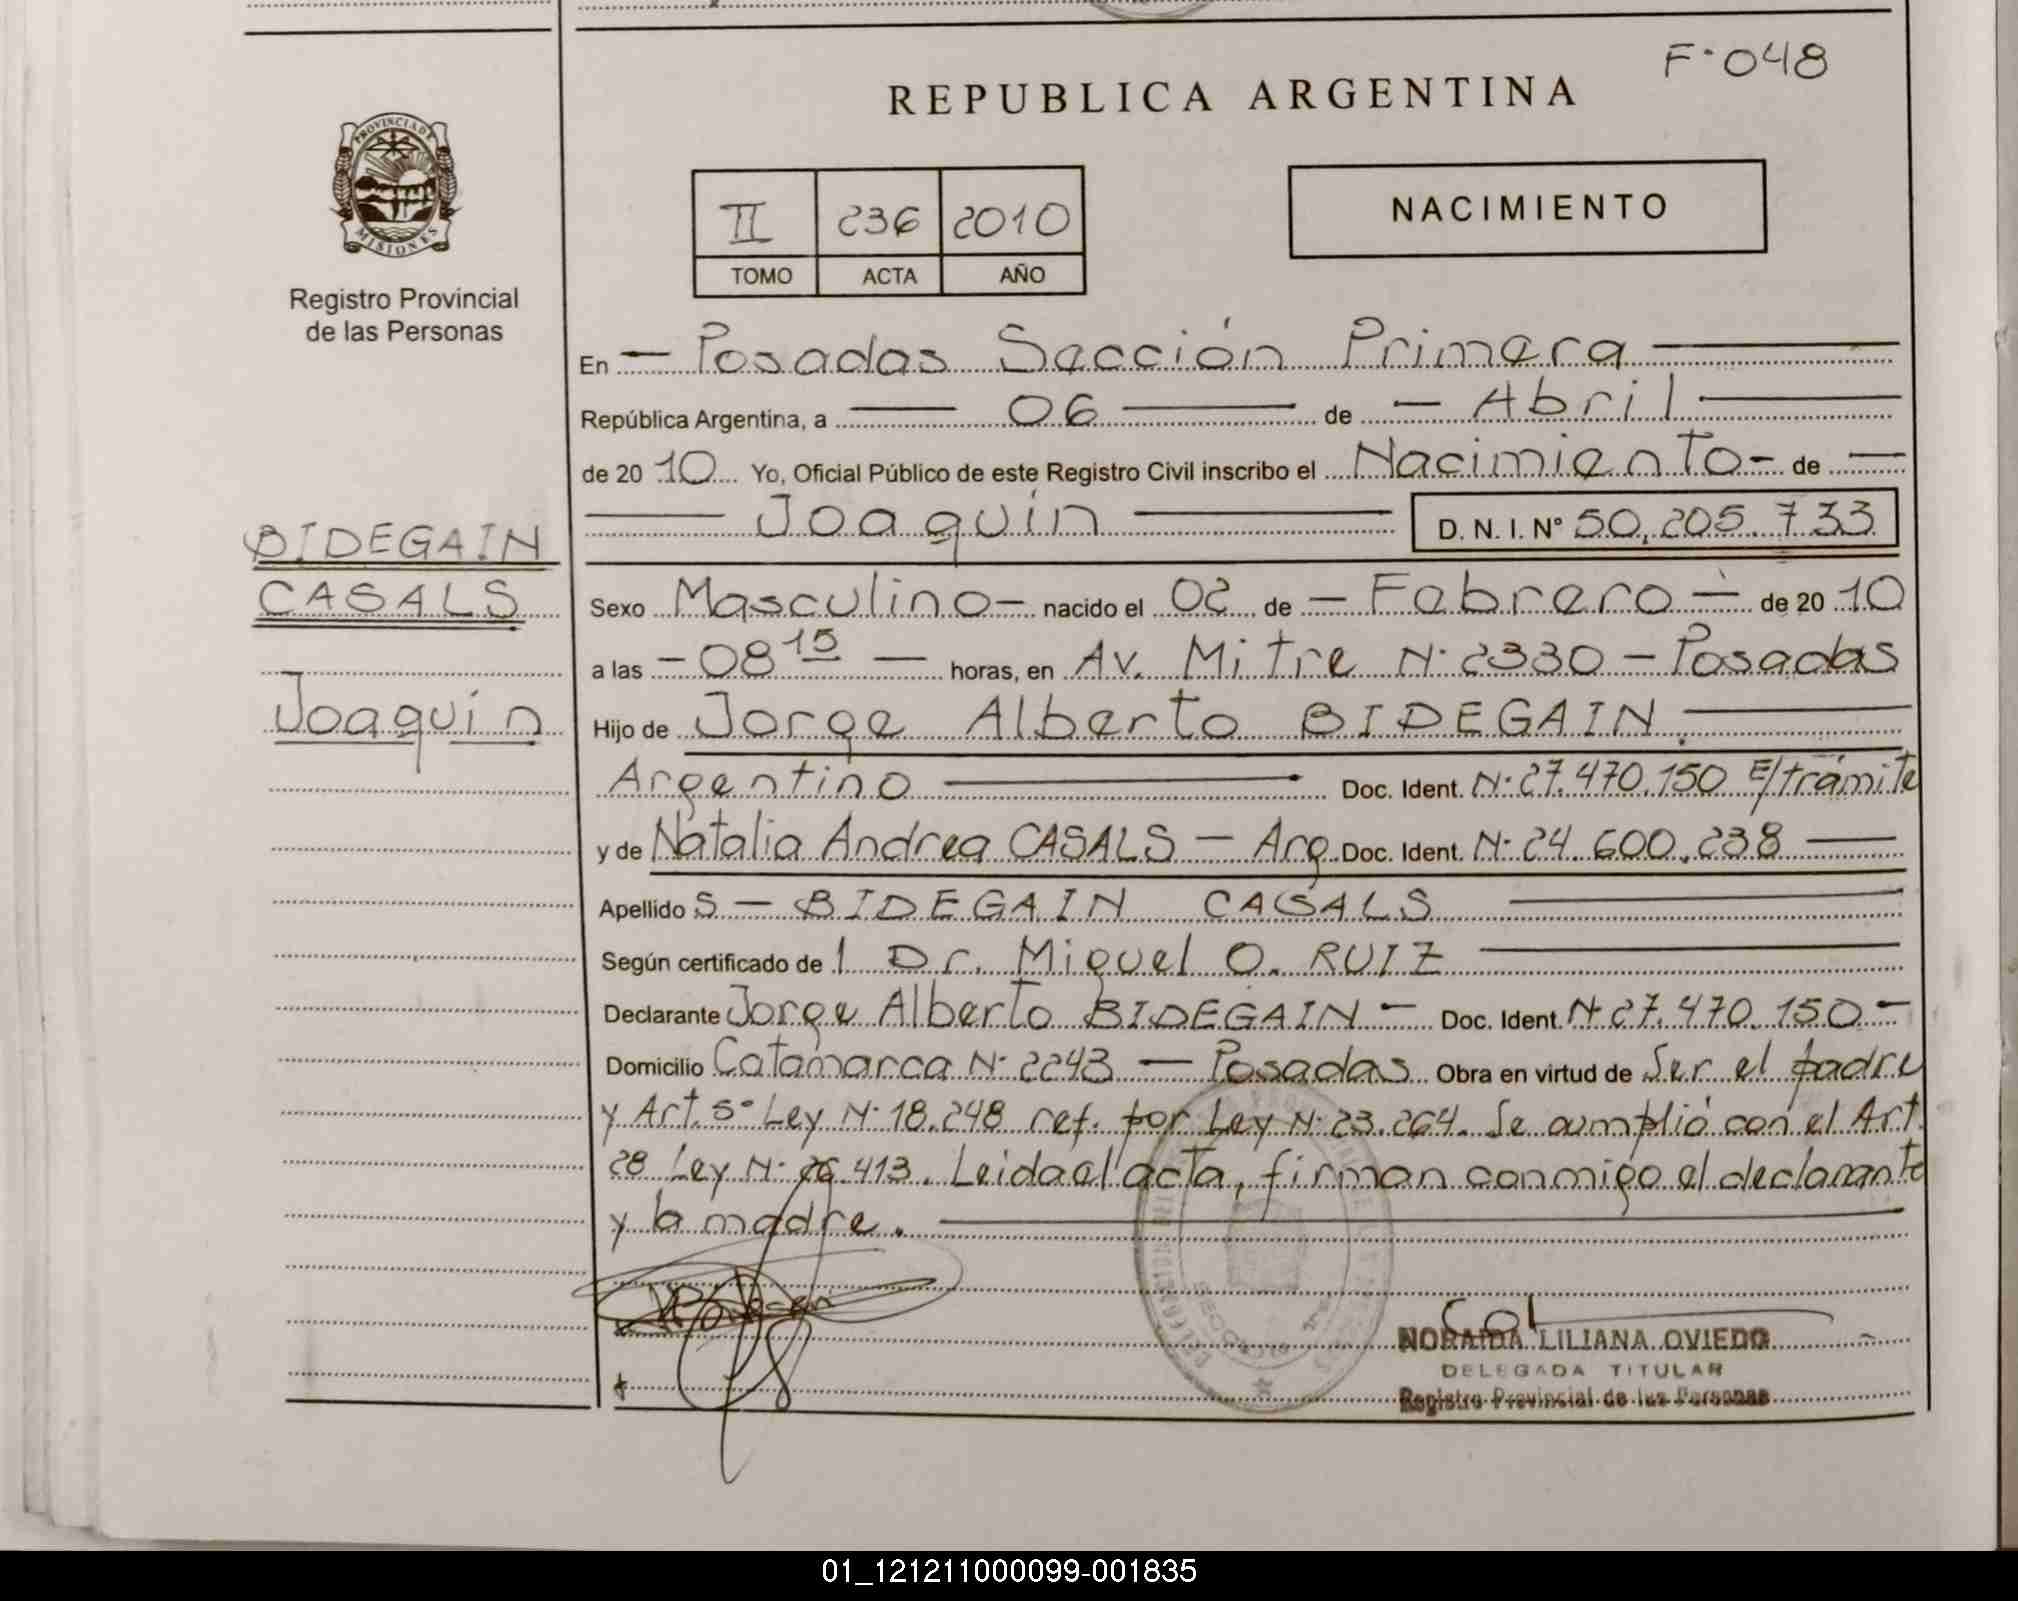 F. 048
REPUBLICA ARGENTINA
PROVINCIA DE
MISIONES
Registro Provincial
de las Personas
II 236 2010
TOMO ACTA AÑO
NACIMIENTO
En Posadas Sección Primera
República Argentina, a 06 de Abril
de 2010 Yo, Oficial Público de este Registro Civil inscribo el Nacimiento de
Joaquín D. N. I. N° 50.205.733
BIDEGAIN
CASALS
Joaquín
Sexo Masculino nacido el 02 de Febrero de 2010
a las 08 15 horas, en Av. Mitre N. 2330 - Posadas
Hijo de Jorge Alberto BIDEGAIN
Argentino Doc. Ident. N. 27.470.150 E/trámite
y de Natalia Andrea CASALS - Arg. Doc. Ident. N. 24.600.238
Apellido S - BIDEGAIN CASALS
Según certificado de l Dr. Miguel O. RUIZ
Declarante Jorge Alberto BIDEGAIN - Doc. Ident. N. 27.470.150 -
Domicilio Catamarca N. 2243 - Posadas Obra en virtud de Ser el padre
y Art. 5° Ley N. 18.248 ref. por Ley N. 23.264. Se cumplió con el Art.
28 Ley N. 26.413. Leida el acta, firman conmigo el declarante
y la madre.
NORAIDA LILIANA OVIEDO
DELEGADA TITULAR
Registro Provincial de las Personas
01_121211000099-001835